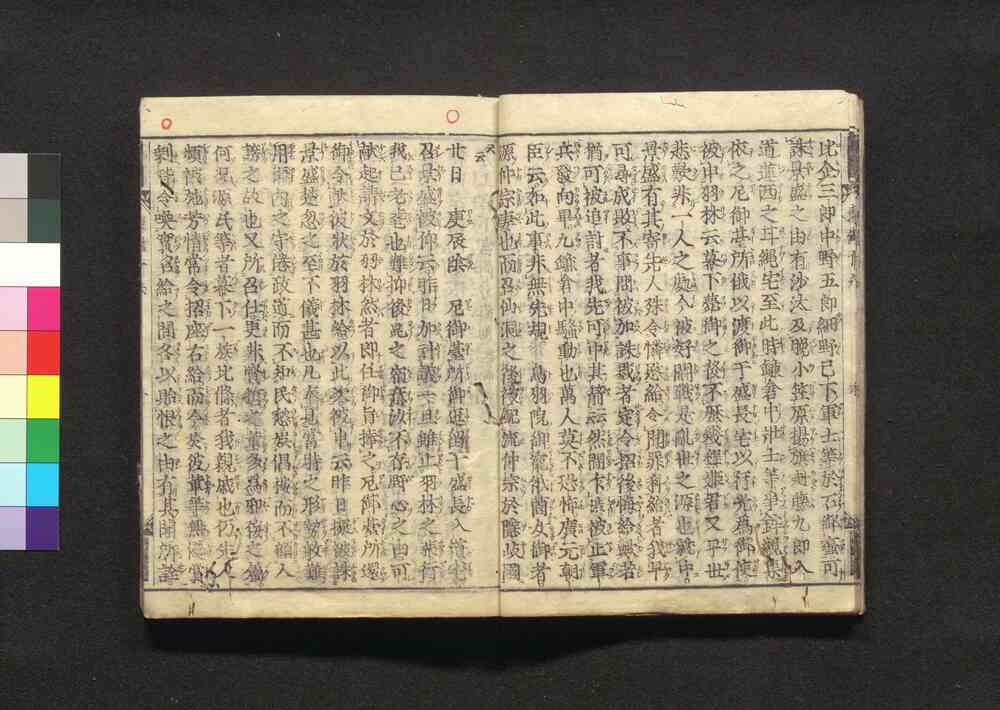 比企三郎中野五郎細野已下軍士等於石御壺可
誅景盛之由有沙汰及晩小笠原揚旗赴藤九郎入
道蓮西之甘縄宅至此時鎌倉中壮士等爭鉾競集
依之尼御臺所俄以渡御于盛長宅以行光爲御使
被申羽林云幕下薨御之後不歴幾程姫君又早世
悲歎非一之處今被好鬪戰是亂世之源也就中
景盛有其寄先人殊令憐愍給令聞罪科給者我早
可尋成敗不事問被加誅戮者定令招後悔給歟若
猶可被追討者我先可中其箭云云然間乍澁被止軍
兵發向畢凡鎌倉中騒動也萬人莫不恐怖廣元朝
臣云如此事非無先規鳥羽院御寵祇園女御者
源仲宗妻也而召仙洞之後被配流仲宗於隱岐國
云云
廿日庚辰陰尼御臺所御逗留于盛長入道宅
召景盛被仰云昨日加計議一旦雖止羽林之張行
我已老耄也難抑後昆之宿意汝不存野心之由可
献起請文於羽林然者即任御旨捧之尼御臺所還
御令献彼状於羽林給以此次被申云昨日擬被誅
景盛楚忽之至不儀甚也凡奉見當時之形勢敢難
用海内之守倦政道而不知民愁娯倡樓而不顧人
謗之故也又所召仕更非賢哲之輩多爲邪佞之屬
何况源氏等者幕下一族北條者我親戚也仍先人
頻被施芳情常令招座右給而今於彼輩等無優賞
剰皆令喚實名給之間各以貽恨之由有其聞所詮